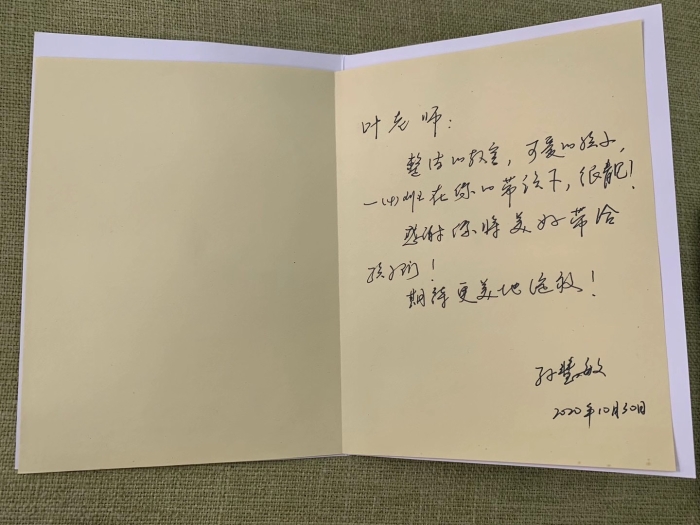 叶老师：
整洁的教室，可爱的孩子，
一(4)班在你的带领下，很靓！
感谢你将美好带给
孩子们！
期待更美地绽放！
孙慧敏
2020年10月30日